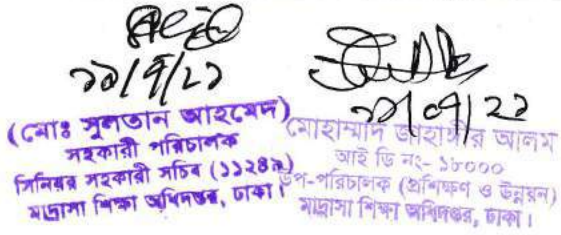 ১১/৭/২১
(মোঃ সুলতান আহমেদ)
সহকারী পরিচালক
সিনিয়র সহকারী সচিব (১১২৪৯)
মাদ্রাসা শিক্ষা অধিদপ্তর, ঢাকা।
মোহাম্মাদ জাহাঙ্গীর আলম
আই ডি নং- ১৮০০০
উপ-পরিচালক (প্রশিক্ষণ ও উন্নয়ন)
মাদ্রাসা শিক্ষা অধিদপ্তর, ঢাকা।